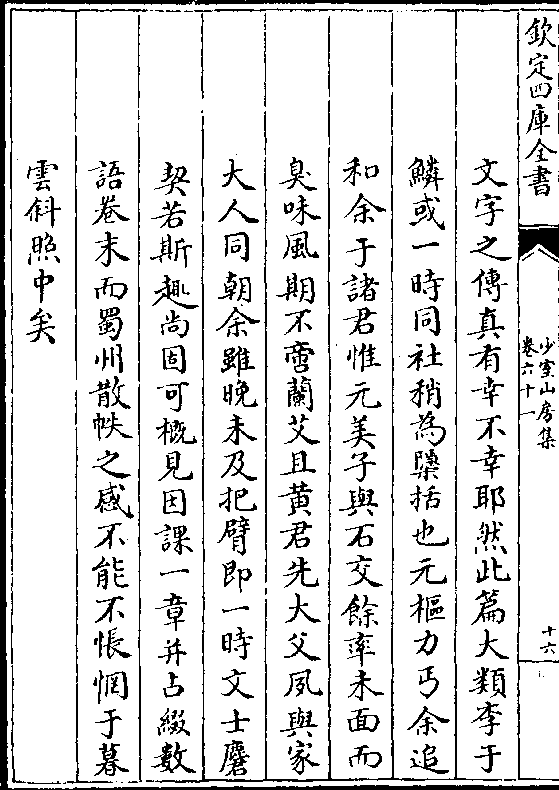 欽定四庫全書
少室山房集
卷六十一
十六
文字之傳真有幸不幸耶然此篇大類李于
鱗或一時同社稍為檃括也元樞力丐余追
和余于諸君惟元美子與石交餘率未面而
臭味風期不啻蘭艾且黄君先大父夙與家
大人同朝余雖晚未及把臂即一時文士磨
契若斯趣尚固可概見因課一章并占綴數
語卷末而蜀州散帙之感不能不悵惘于暮
雲斜照中矣